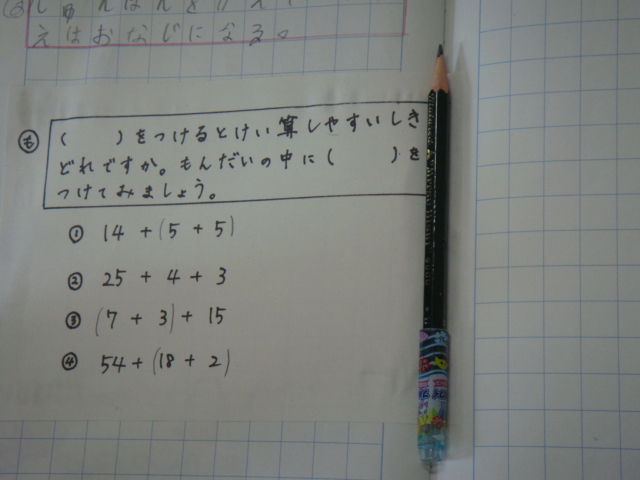 えはおなじになる。
も
( )をつけるとけい算しやすいしき
どれですか。もんだいの中に( )を
つけてみましょう。
① 14 + (5 + 5)
② 25 + 4 + 3
③ (7 + 3) + 15
④ 54 + (18 + 2)